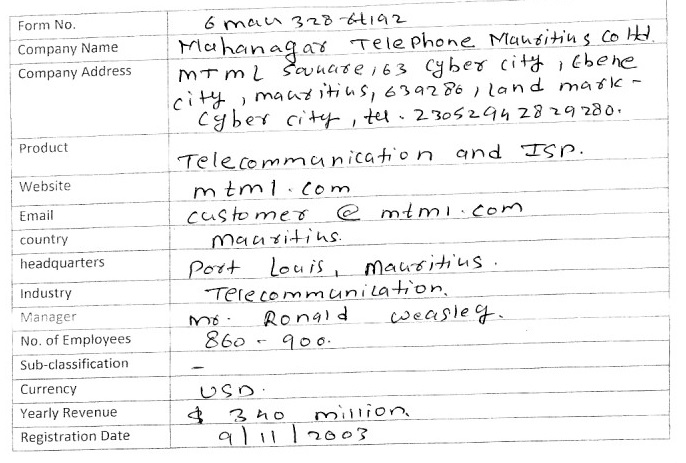 Form No. 6 mau 328-64192
Company Name Mahanagar Telephone Mauritius Co ltd.
Company Address MTML Square, 63 Cyber city, Ebene
city, mauritius, 639286, land mark -
Cyber city, tel. 23052942829280.
Product Telecommunication and ISP.
Website mtml.com
Email customer @ mtml.com
country Mauritius.
headquarters Port Louis, Mauritius.
Industry Telecommunication.
Manager Mr. Ronald Weasley.
No. of Employees 860 - 900.
Sub-classification –
Currency USD.
Yearly Revenue $ 340 million.
Registration Date 9/11/2003